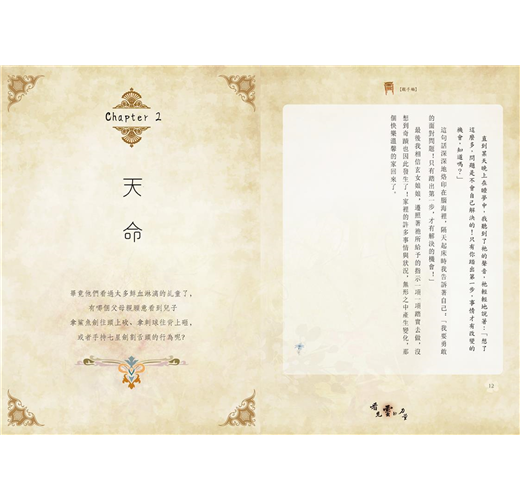 Chapter 2
天命
畢竟他們看過太多鮮血淋漓的乩童了，
有哪個父母親願意看到兒子
拿鯊魚劍往頭上砍、拿刺球往背上砸，
或者手持七星劍割舌頭的行為呢？
直到某天晚上在睡夢中，我聽到了祂的聲音，祂輕輕地說著：「想了
這麼多，問題是不會自己解決的！只有你踏出第一步，事情才有改變的
機會，知道嗎？」
這句話深深地烙印在腦海裡，隔天起床時我告訴著自己，「我要勇敢
的面對問題！只有踏出第一步，才有解決的機會！」
最後我相信玄女娘娘，遵照著祂所給予的指示一項一項踏實去做，沒
想到奇蹟也因此發生了！家裡的許多事情與狀況，無形之中產生變化，那
個快樂溫馨的家回來了。
12
看見靈的力量